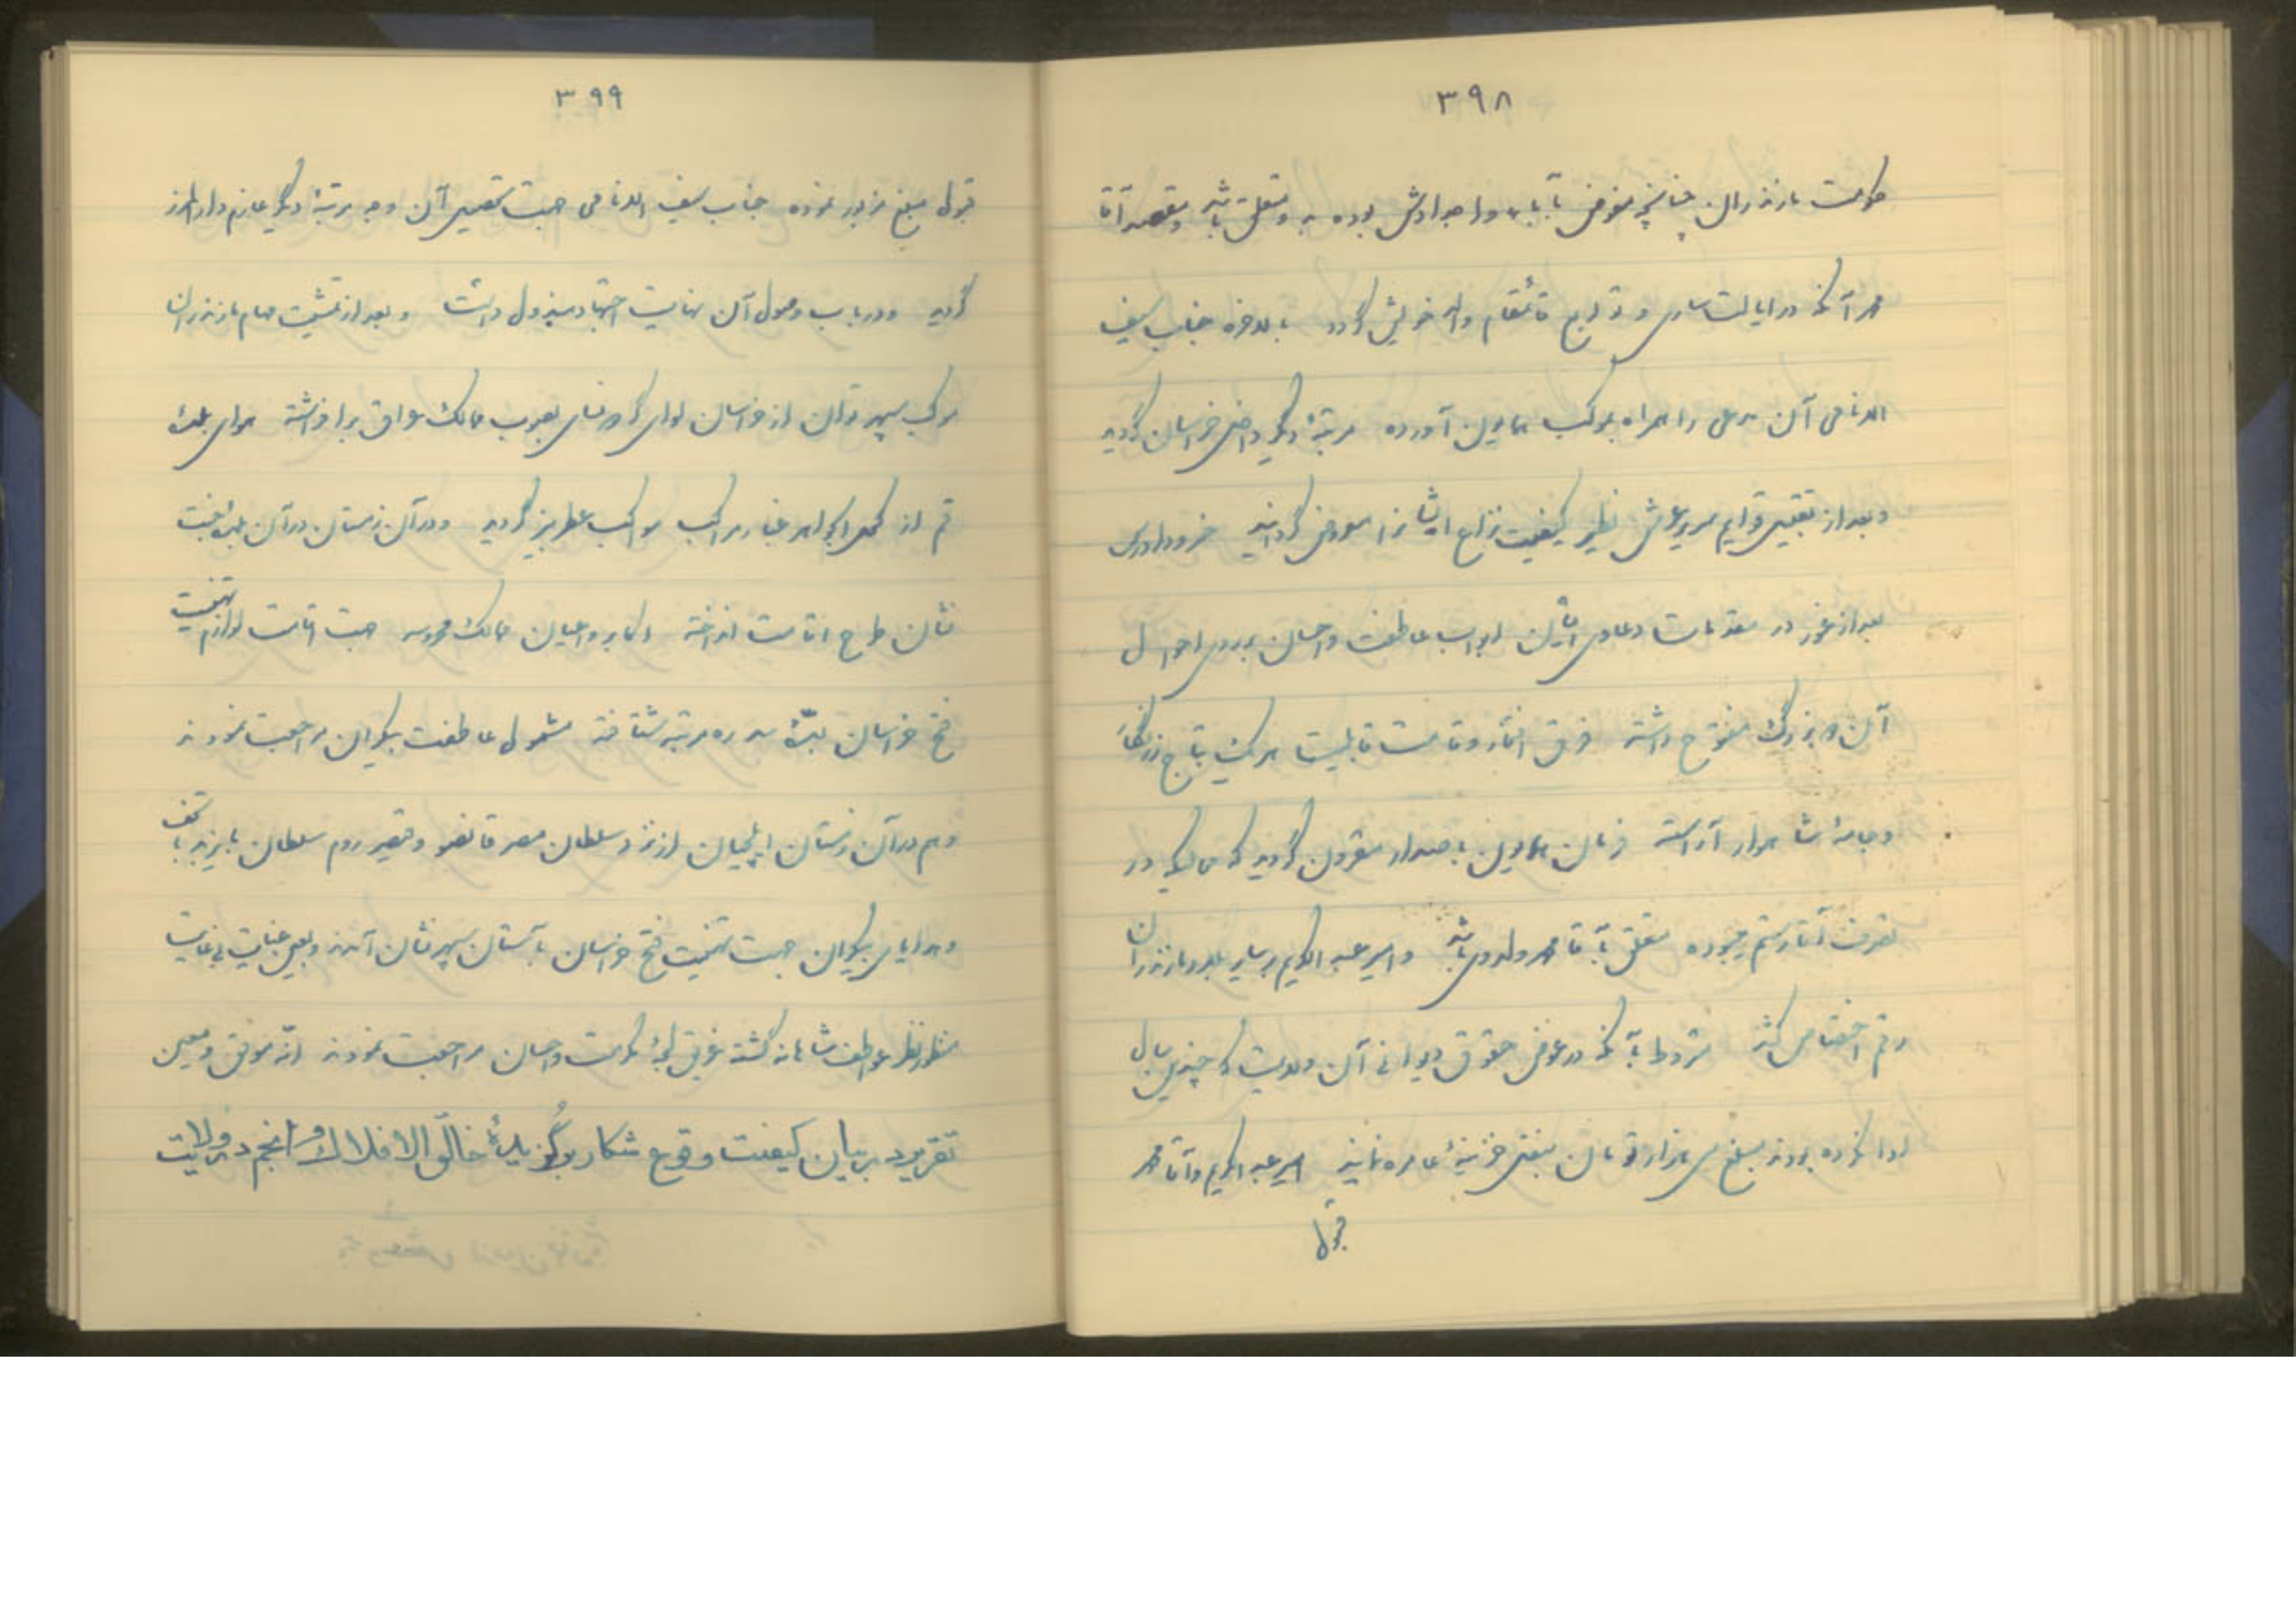 ۳۹۸
حکومت مازندران چنانچه مفوض بآباء و اجدادش بوده به و متعلق باشد و مقصد آقا
محمد آنکه در ایالت ساری و توابع قائمقام والد خویش گردد بالاخره جناب سیف
الانامی آن مدعی را همراه بموکب همایون آورده مرتبهٔ دیگر داخل خراسان گردید
و بعد از تقبیل قوایم سریر عرش نظیر کیفیت نزاع ایشانرا معروض گردانید خسرو داد‌رس
بعد از غور در مقدمات دعاوی ایشان ابواب عاطفت و احسان بر روی احوال
آن دو بزرگ مفتوح داشته فرق افتخار و قامت قابلیت هر یک بتاج زرنگار
و جامهٔ شاهوار آراسته فرمان همایون باصدار مقرون گردید که محالیکه در
تصرف آقا رستم میبوده متعلق بآقا محمد ولد وی باشد و امیر عبد الکریم بسایر بلاد مازندران
رقم اختصاص کشد مشروط بآنکه در عوض حقوق دیوانی آن ولایت که چندین سال
ادا نکرده بودند مبلغ سی هزار تومان بنقد خزینهٔ عامره نمایند امیر عبد الکریم و آقا محمد
قبول
۳۹۹
قبول مبلغ مزبور نموده جناب سیف الانامی جهت تحصیل آن وجه مرتبهٔ دیگر عازم دار المرز
گردید و در باب وصول آن نهایت اجتهاد مبذول داشت و بعد از تمشیت مهام مازندران
موکب سپهر توان از خراسان لوای گردون‌سای بصوب ممالک عراق برافراشته هوای بلدهٔ
قم از کحل الجواهر غبار مراکب مواکب عطربیز گردید و در آن زمستان در آن بلدهٔ جنت
نشان طرح اقامت انداخته اکابر و اعیان ممالک محروسه جهت اقامت لوازم تهنیت
فتح خراسان بسدهٔ سدره مرتبه شتافته مشمول عاطفت بیکران مراجعت نمودند
و هم در آن زمستان ایلچیان از نزد سلطان مصر قانصو و قیصر روم سلطان بایزید با تحف
و هدایای بیکران جهت تهنیت فتح خراسان بآستان سپهر نشان آمدند و بعین عنایت بی‌غایت
منظور نظر عواطف شاهانه گشته غریق لجهٔ مکرمت و احسان مراجعت نمودند انه موفق و معین
تقریر در بیان کیفیت وقوع شکار برگزیدهٔ خالق الافلاک و انجم در ولایت